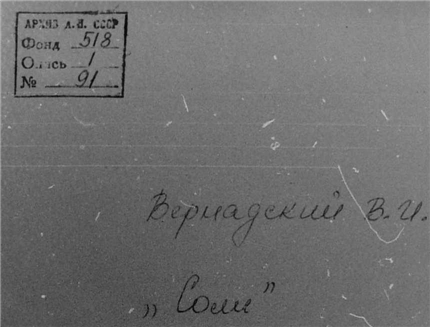 АРХИВ А.Н. СССР
Фонд 518
Опись 1
№ 91
Вернадский В.И.
„Соли"